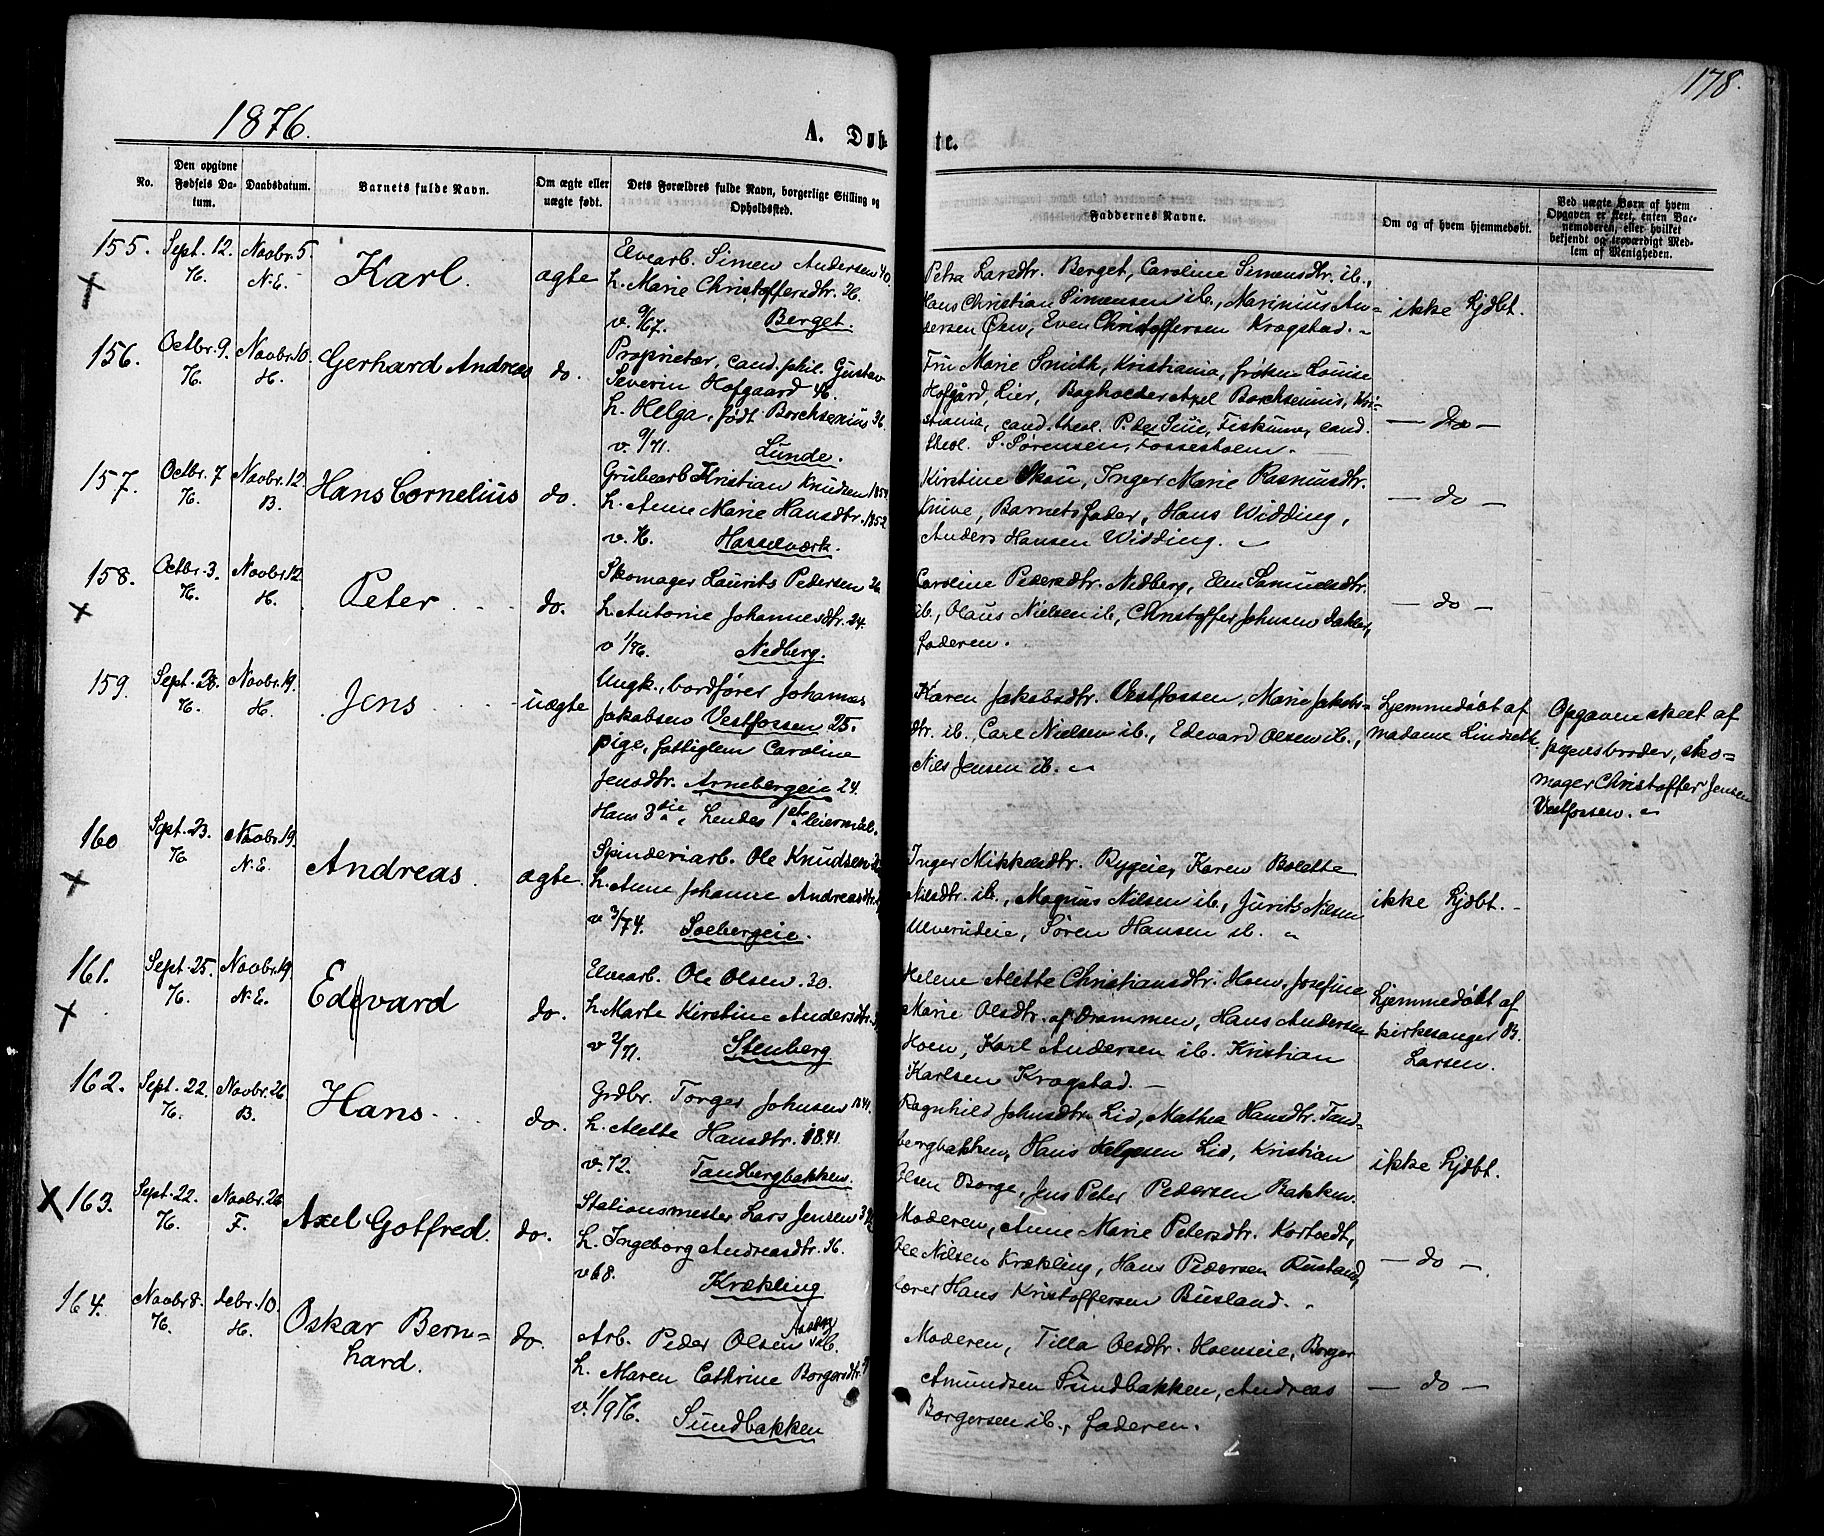 178.
1876.
A. Døb-
te.
No.
Den opgivne Fødsels Da-tum.
Daabsdatum.
Barnets fulde Navn.
Om ægte eller uægte født.
Dets Forældres fulde Navn, borgerlige Stilling og Opholdssted.
Faddernes Navne.
Om og af hvem hjemmedøbt.
Ved uægte Børn af hvem Opgaven er skeet, enten Bar-nemoderen, eller hvilket bekjendt og troværdigt Med-lem af Menigheden.
155. Sept. 12. Novbr. 5. Karl. ægte
H. N.E.
Elvearb. Simen Andersen 40.
h. Marie Christoffersdtr. 36.
v. 9/67. Berget.
Petra Larsdtr. Berget, Caroline Simensdtr. ib.,
Hans Christian Simensen ib., Marinius An-
dersen Øen, Even Christoffersen Krogstad.
ikke hjdbt.
156. Octbr. 9. Novbr. 10. Gerhard Andreas do.
H. H.
Proprietær, cand. phil. Gustav
Severin Hofgaard 46.
h. Helga, født Borchsenius 36.
v. 9/71. Lunde.
Fru Marie Smith, Kristiania, frøken Louise
Hofgård, Lier, Bogholder Axel Borchsenius, Kri-
stiania, cand. theol. Fiskum, cand.
theol. S. Sørensen, Fossesholm.
— do —
157. Octbr. 7 Novbr. 12. Hans Cornelius do.
H. B.
Grubearb. Kristian Knudsen 1854.
h. Anne Marie Hansdtr. 1852.
v. Hasselværk.
Kirstine Skau, Inger Marie Rasmusdtr.
Knive, Barnets fader, Hans Widding,
Anders Hansen Widding.
— do —
158. Octbr. 3. Novbr. 12. Peter do.
H. H.
Skomager Laurits Pedersen 26.
h. Antonie Johannesdtr. 24.
v. 1/76. Nedberg.
Caroline Pedersdtr. Nedberg, Elen Samuelsdtr.
ib., Olaus Nielsen ib., Christoffer Johnsen
faderen.
— do —
159. Sept. 28. Novbr. 19. Jens uægte
H. H.
Ungk., bordfører Johannes
Jakobsen Vestfossen 25.
pige, fattiglem Caroline
Jensdtr. Arnebergeie 24.
Hans 3die, hendes 1ste leiermål.
Karen Jakobsdtr. Vestfossen, Marie Jakobs-
dtr. ib., Carl Nielsen ib., Edevard Olsen ib.,
Nils Jensen ib.
hjemmedøbt af
madame Lindseth.
Opgaven skeet af
pigens broder, sko-
mager Christoffer Jensen
Vestfossen.
160 Sept. 23. Novbr. 19. Andreas. ægte.
H N.E.
Spinderiarb. Ole Knudsen
h. Anne Johanne Andreasdtr.
v. 3/74. Soebergeie.
Inger Mikkelsdtr. Bygeie, Karen Bolette
Nilsdtr. ib., Magnus Nilsen ib., Jurits Nilsen
Ulverudeie, Søren Hansen ib.
ikke hjdbt.
161. Sept. 25. Novbr. 19. Edevard do.
H. N.E.
Elvearb. Ole Olsen. 30.
h. Marte Kirstine Andersdtr.
v. 2/71. Stenberg
Helene Alette Christiansdtr. Hoen, Josefine
Marie Olsdtr. af Drammen, Hans Andersen
Hoen, Karl Andersen ib. Kristian
Karlsen Krogstad.
hjemmedøbt af
kirkesanger B.
Larsen.
162. Sept. 22. Novbr. 26 Hans. do.
H. B.
Grdbr. Torger Johnsen 1841.
h. Alette Hansdtr. 1841.
v. 72. Tandbergbakken.
Ragnhild Johnsdtr. Lid, Mathea Hansdtr. Tand-
bergbakken, Hans Helgesen Lid, Kristian
Olsen Borge, Jens Peter Pedersen Bakken.
ikke hjdbt.
163. Sept. 22. Novbr. 26 Axel Gotfred. do.
H. F.
Stationsmester Lars Jensen
h. Ingeborg Andreasdtr. 36.
v. 68. Krækling
Moderen, Anne Marie Petersdtr. Kortvedt,
Ole Nilsen Krækling, Hans Pedersen Rustand,
lærer Hans Kristoffersen Busland.
— do —.
164. Novbr 8. debr. 10. Oskar Bern=hard. do.
H. H.
Arb. Peder Olsen
h. Maren Cathrine Borgersdtr.
v. 1/9 76. Sundbakken
Moderen, Tilla Olsdtr. Hoenseie, Borger
Amundsen Sundbakken, Andreas
Borgersen ib., faderen.
— do —